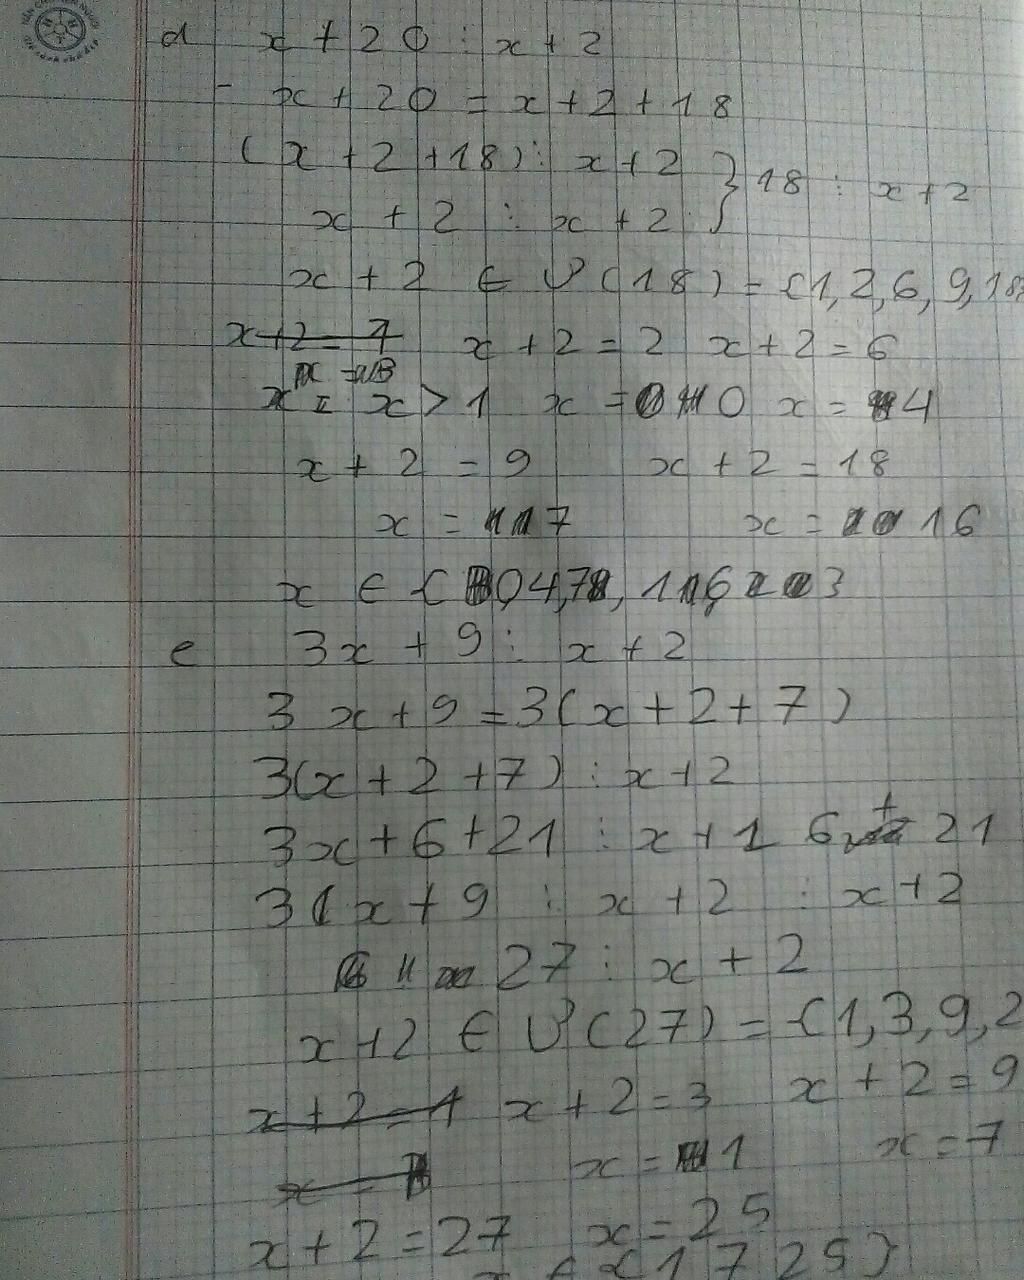 d x + 20 ⋮ x + 2
- x + 20 = x + 2 + 18
(x + 2 + 18) ⋮ x + 2 } 18 ⋮ x + 2
x + 2 ⋮ x + 2
x + 2 ∈ Ư(18) = {1, 2, 6, 9, 18}
x + 2 = 1 x + 2 = 2 x + 2 = 6
x > 1 x = 0 x = 4
x + 2 = 9 x + 2 = 18
x = 7 x = 16
x ∈ {0, 4, 7, 16}
e 3x + 9 ⋮ x + 2
3x + 9 = 3(x + 2 + 7)
3(x + 2 + 7) ⋮ x + 2
3x + 6 + 21 ⋮ x + 1 6 + 21
3(x + 9 ⋮ x + 2 ⋮ x + 2
27 ⋮ x + 2
x + 2 ∈ Ư(27) = {1, 3, 9, 2
x + 2 = 1 x + 2 = 3 x + 2 = 9
x = 1 x = 7
x + 2 = 27 x = 25
x ∈ {1 7 25}